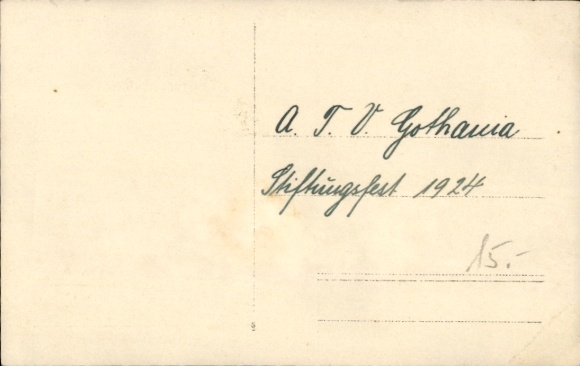 A. T. V. Gothania
Stiftungsfest 1924
15.-